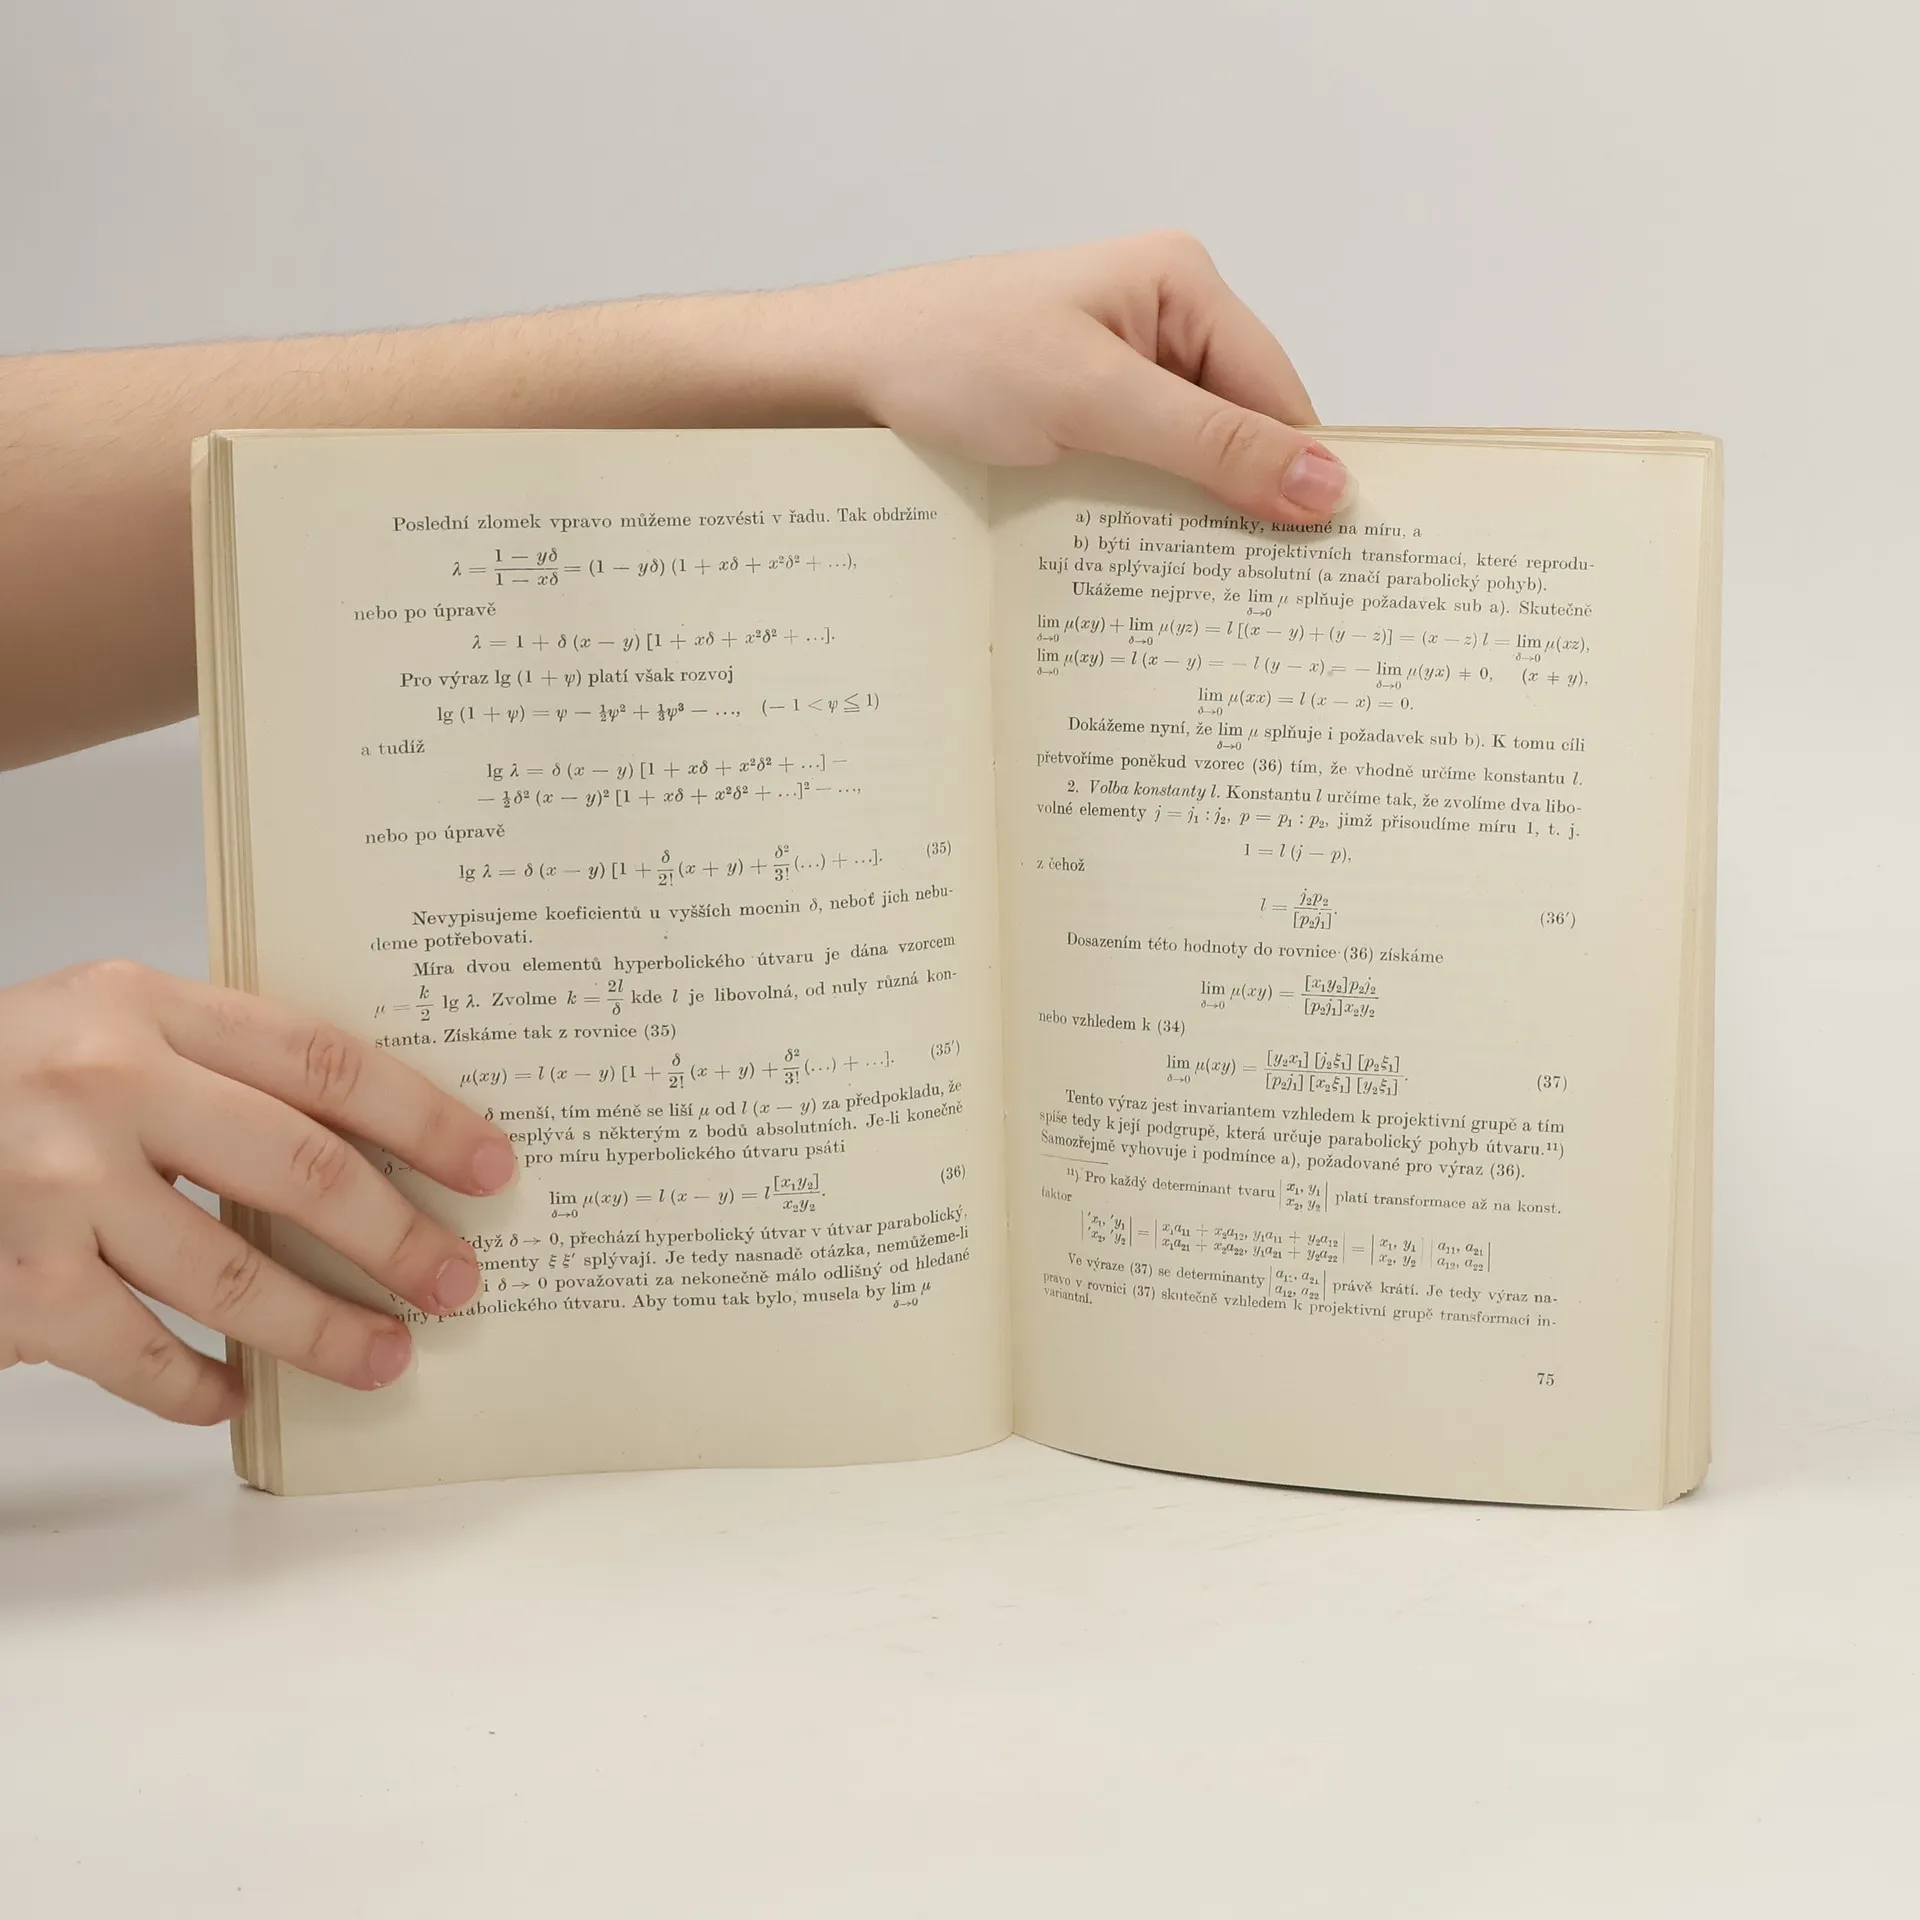 Poslední zlomek vpravo můžeme rozvésti v řadu. Tak obdržíme
λ = (1 − yδ)/(1 − xδ) = (1 − yδ) (1 + xδ + x²δ² + ...),
nebo po úpravě
λ = 1 + δ (x − y) [1 + xδ + x²δ² + ...].
Pro výraz lg (1 + ψ) platí však rozvoj
lg (1 + ψ) = ψ − ½ψ² + ⅓ψ³ − ..., (− 1 < ψ ≦ 1)
a tudíž
lg λ = δ (x − y) [1 + xδ + x²δ² + ...] −
− ½δ² (x − y)² [1 + xδ + x²δ² + ...]² − ...,
nebo po úpravě
lg λ = δ (x − y) [1 + δ/2! (x + y) + δ²/3! (...) + ...]. (35)
Nevypisujeme koeficientů u vyšších mocnin δ, neboť jich nebu-
deme potřebovati.
Míra dvou elementů hyperbolického útvaru je dána vzorcem
μ = k/2 lg λ. Zvolme k = 2l/δ kde l je libovolná, od nuly různá kon-
stanta. Získáme tak z rovnice (35)
μ(xy) = l (x − y) [1 + δ/2! (x + y) + δ²/3! (...) + ...]. (35′)
δ menší, tím méně se liší μ od l (x − y) za předpokladu, že
nesplývá s některým z bodů absolutních. Je-li konečně
δ → pro míru hyperbolického útvaru psáti
lim δ→0 μ(xy) = l (x − y) = l [x₁y₂]/x₂y₂. (36)
když δ → 0, přechází hyperbolický útvar v útvar parabolický,
ementy ξ ξ′ splývají. Je tedy nasnadě otázka, nemůžeme-li
i δ → 0 považovati za nekonečně málo odlišný od hledané
míry parabolického útvaru. Aby tomu tak bylo, musela by lim δ→0 μ
a) splňovati podmínky, kladené na míru, a
b) býti invariantem projektivních transformací, které reprodu-
kují dva splývající body absolutní (a značí parabolický pohyb).
Ukážeme nejprve, že lim δ→0 μ splňuje požadavek sub a). Skutečně
lim δ→0 μ(xy) + lim δ→0 μ(yz) = l [(x − y) + (y − z)] = (x − z) l = lim δ→0 μ(xz),
lim δ→0 μ(xy) = l (x − y) = − l (y − x) = − lim δ→0 μ(yx) ≠ 0, (x ≠ y),
lim δ→0 μ(xx) = l (x − x) = 0.
Dokážeme nyní, že lim δ→0 μ splňuje i požadavek sub b). K tomu cíli
přetvoříme poněkud vzorec (36) tím, že vhodně určíme konstantu l.
2. Volba konstanty l. Konstantu l určíme tak, že zvolíme dva libo-
volné elementy j = j₁ : j₂, p = p₁ : p₂, jimž přisoudíme míru 1, t. j.
1 = l (j − p),
z čehož
l = j₂p₂/[p₂j₁]. (36′)
Dosazením této hodnoty do rovnice (36) získáme
lim δ→0 μ(xy) = [x₁y₂]p₂j₂/[p₂j₁]x₂y₂
nebo vzhledem k (34)
lim δ→0 μ(xy) = [y₂x₁] [j₂ξ₁] [p₂ξ₁]/[p₂j₁] [x₂ξ₁] [y₂ξ₁]. (37)
Tento výraz jest invariantem vzhledem k projektivní grupě a tím
spíše tedy k její podgrupě, která určuje parabolický pohyb útvaru.¹¹)
Samozřejmě vyhovuje i podmínce a), požadované pro výraz (36).
¹¹) Pro každý determinant tvaru |x₁, y₁; x₂, y₂| platí transformace až na konst.
faktor
|′x₁, ′y₁; ′x₂, ′y₂| = |x₁a₁₁ + x₂a₁₂, y₁a₁₁ + y₂a₁₂; x₁a₂₁ + x₂a₂₂, y₁a₂₁ + y₂a₂₂| = |x₁, y₁; x₂, y₂| |a₁₁, a₂₁; a₁₂, a₂₂|
Ve výraze (37) se determinanty |a₁₁, a₂₁; a₁₂, a₂₂| právě krátí. Je tedy výraz na-
pravo v rovnici (37) skutečně vzhledem k projektivní grupě transformací in-
variantní.
75